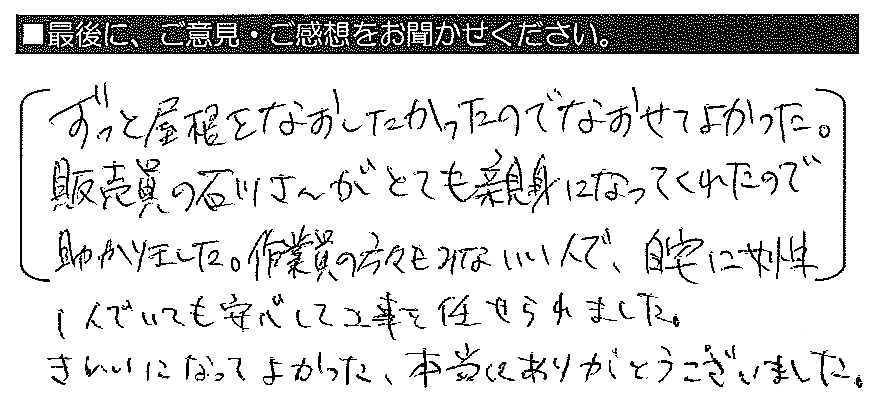 ■最後に、ご意見・ご感想をお聞かせください。
ずっと屋根をなおしたかったのでなおせてよかった。
販売員の石川さんがとても親身になってくれたので
助かりました。作業員の方々もみないい人で、自宅に女性
1人でいても安心して工事を任せられました。
きれいになってよかった、本当にありがとうございました。